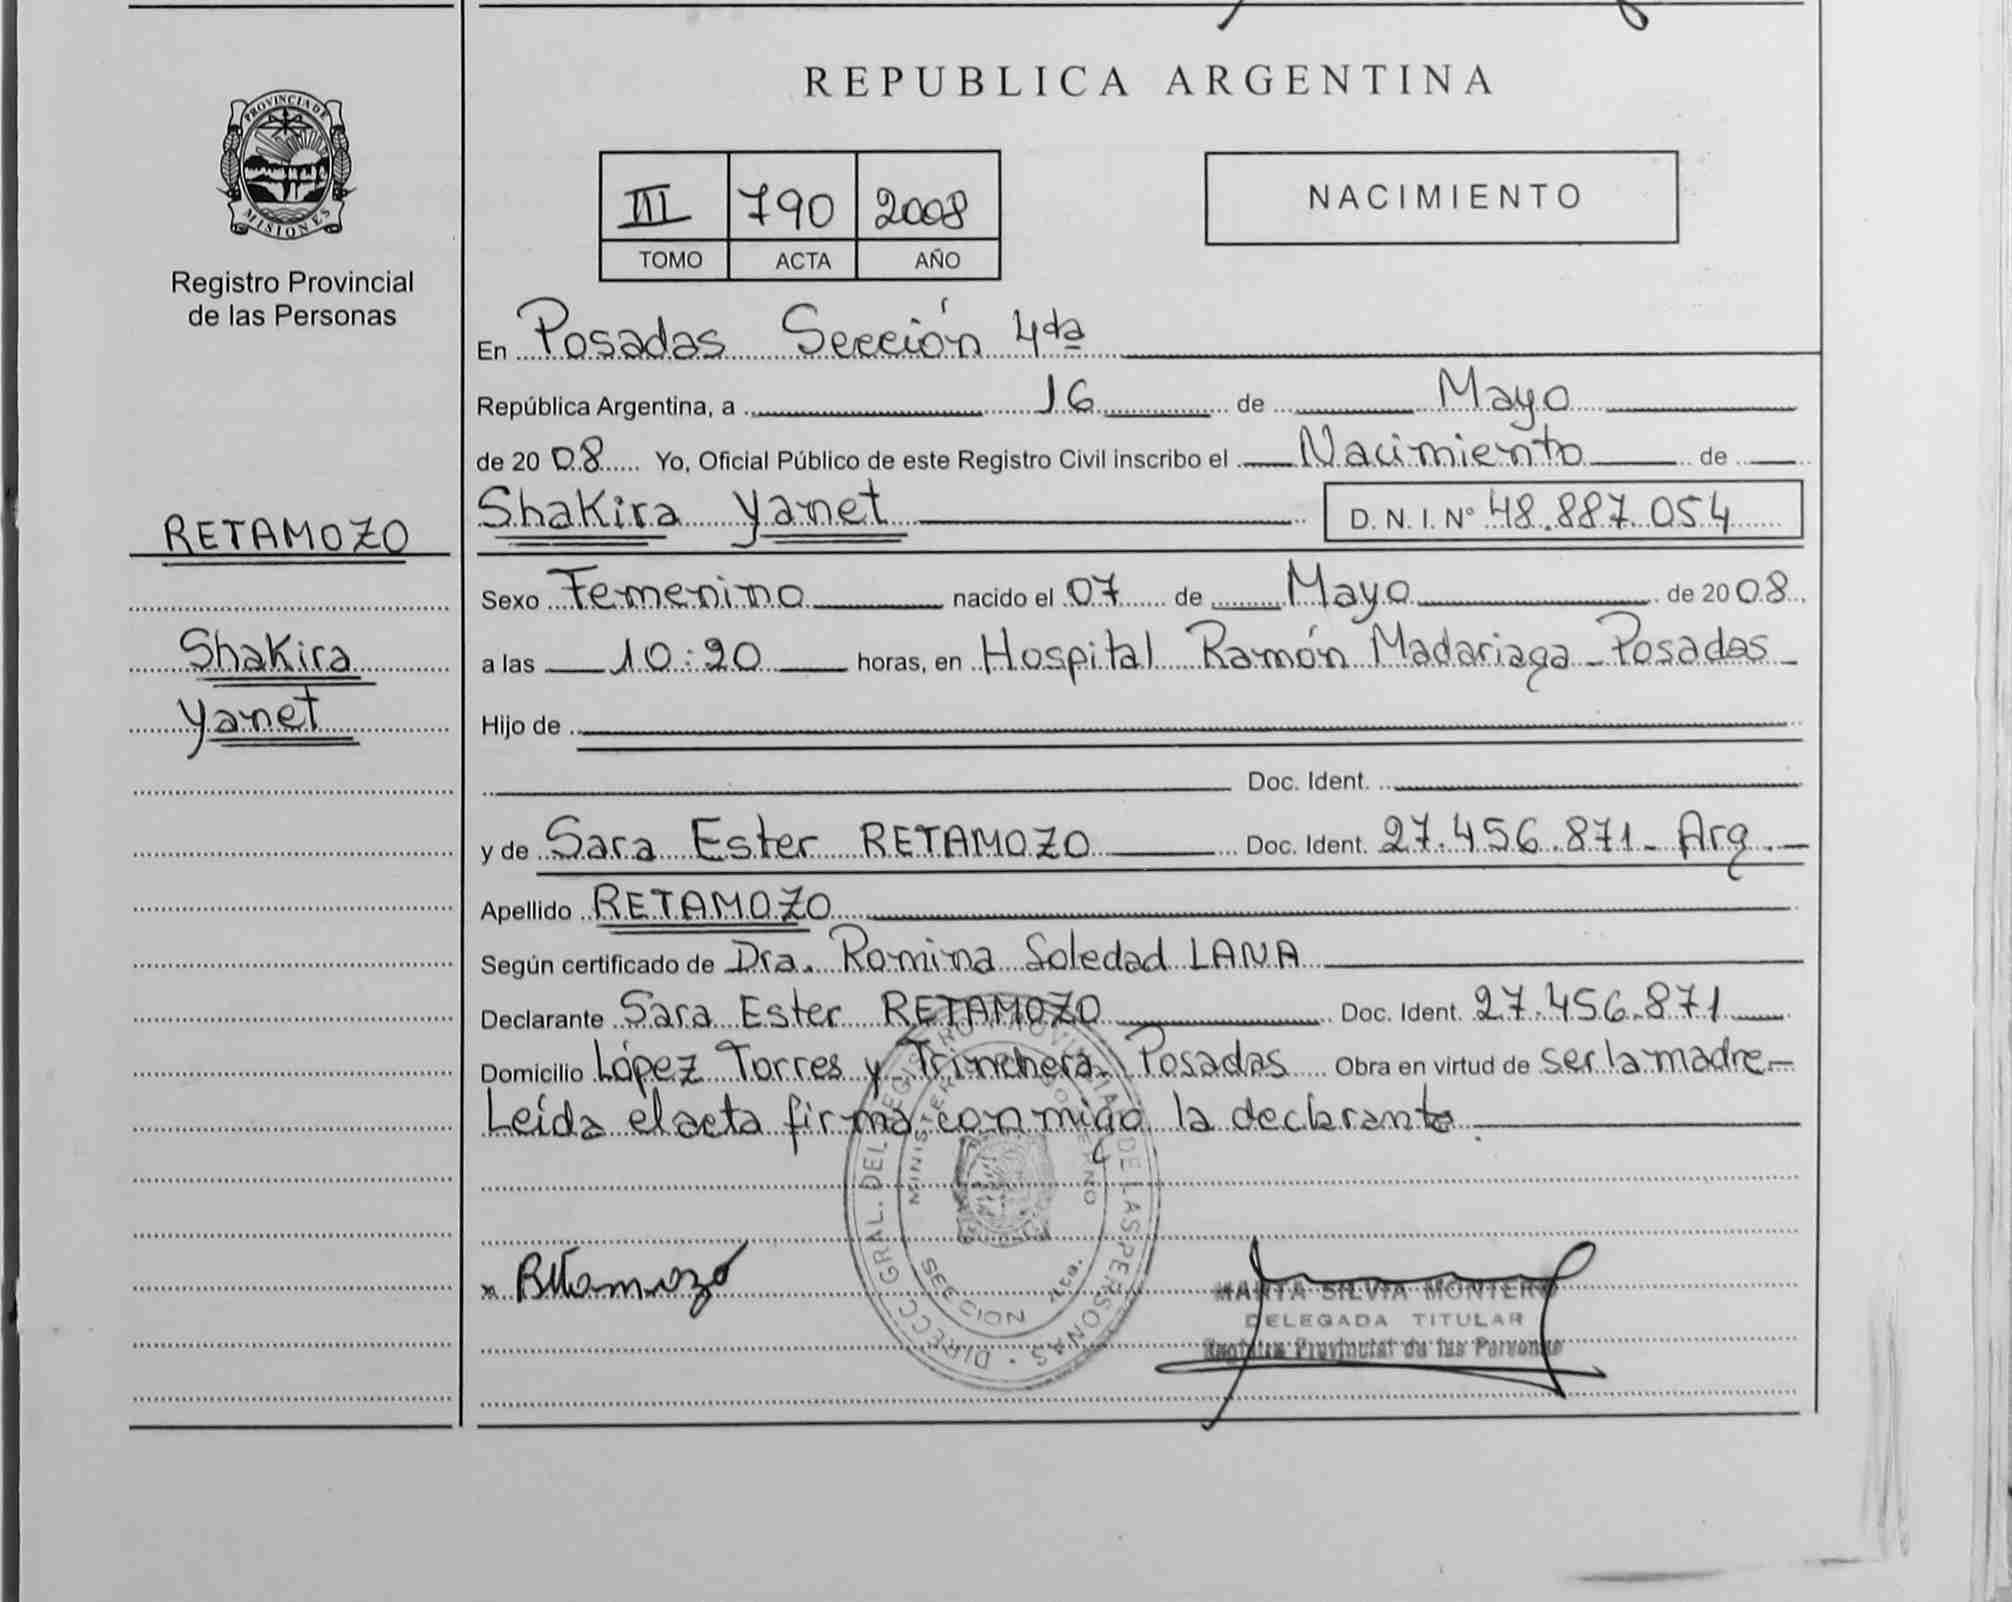 REPUBLICA ARGENTINA
PROVINCIA DE
MISIONES
Registro Provincial
de las Personas
III 790 2008
TOMO ACTA AÑO
NACIMIENTO
En Posadas Sección 4da
República Argentina, a 16 de Mayo
de 20 08 Yo, Oficial Público de este Registro Civil inscribo el Nacimiento de
RETAMOZO
Shakira Yanet D. N. I. Nº 48.887.054
Sexo Femenino nacido el 07 de Mayo de 20 08
Shakira
Yanet
a las 10:20 horas, en Hospital Ramón Madariaga - Posadas -
Hijo de
Doc. Ident.
y de Sara Ester RETAMOZO Doc. Ident. 27.456.871 - Arg. -
Apellido RETAMOZO
Según certificado de Dra. Romina Soledad LANA
Declarante Sara Ester RETAMOZO Doc. Ident. 27.456.871
Domicilio López Torres y Trinchera - Posadas Obra en virtud de ser la madre -
Leída el acta firma conmigo la declarante.
DIRECC. GRAL. DEL REGISTRO PROVINCIAL DE LAS PERSONAS
MINISTERIO DE GOBIERNO
SECCION 4ta.
Retamozo
MARTA SILVIA MONTERO
DELEGADA TITULAR
Registro Provincial de las Personas